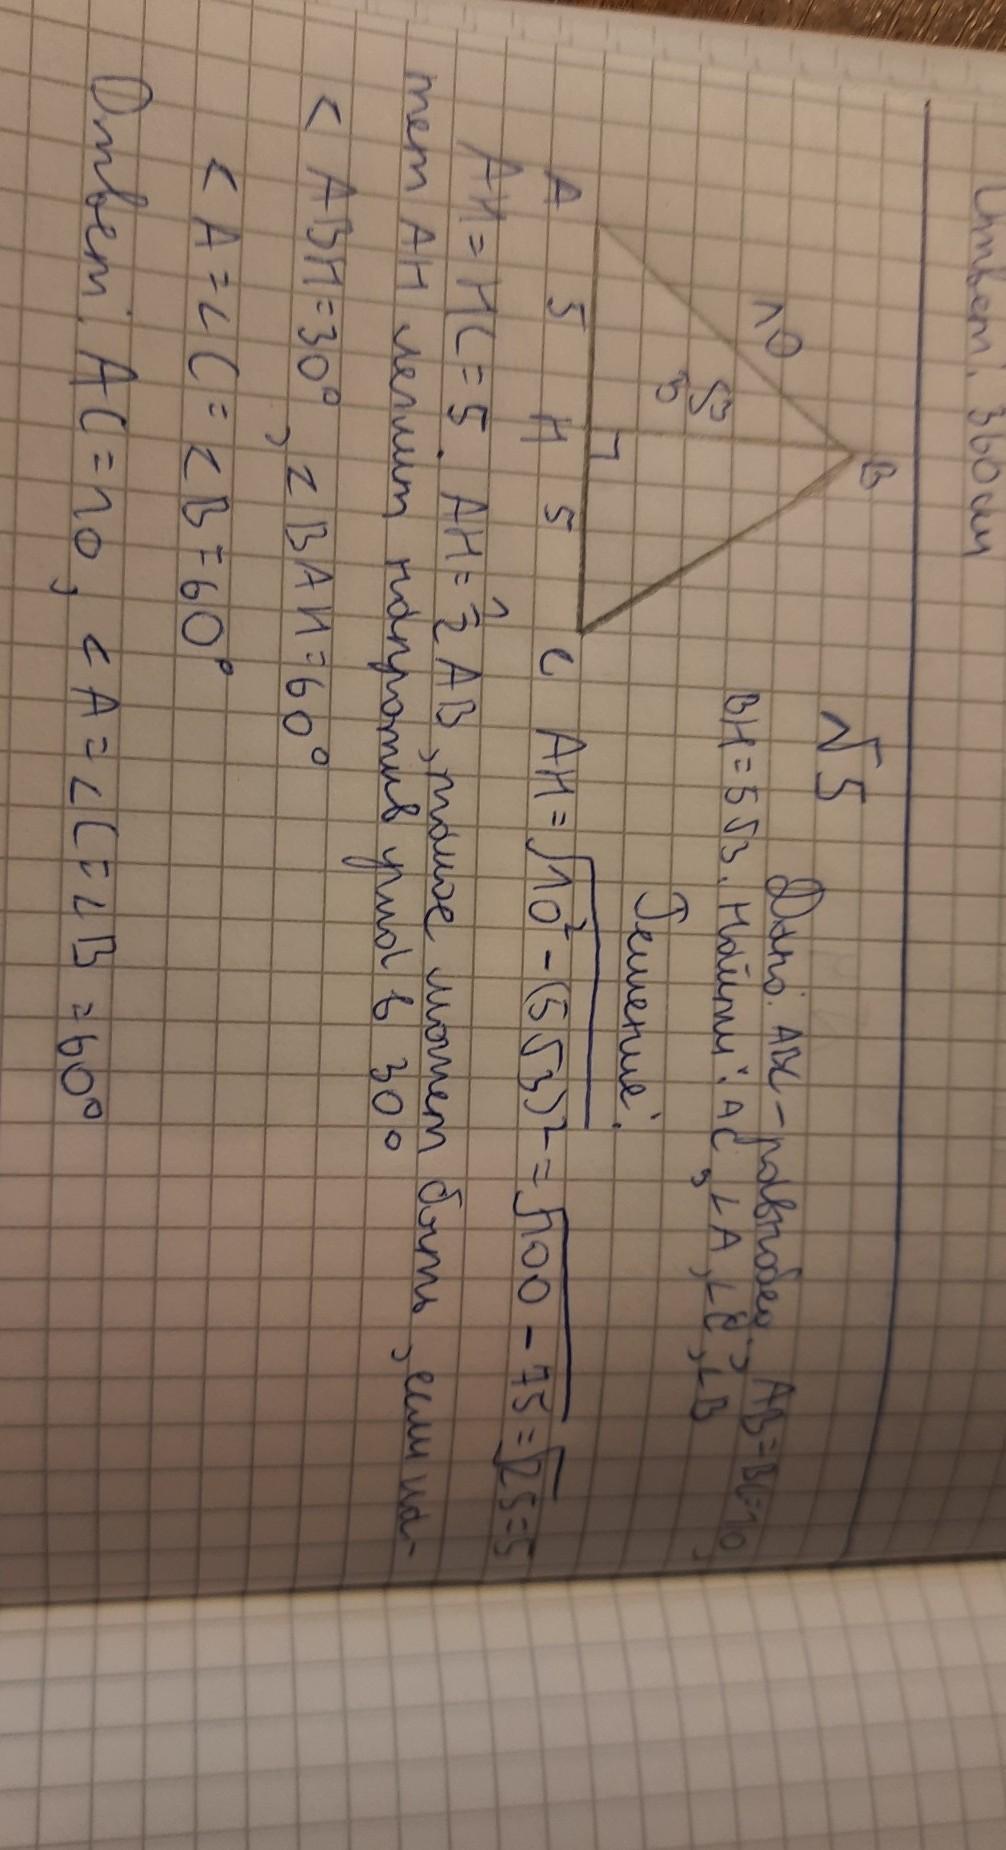 Ответ: 360 см
√5
Дано: ABC - равнобед., AB=BC=10,
BH=5√3. Найти: AC, ∠A, ∠C, ∠B
Решение:
B
10
5√3
A 5 H 5 C
AH=√10²-(5√3)²=√100-75=√25=5
AH=HC=5. AH=½AB, такое может быть, если ка-
тет AH лежит напротив угла в 30°
<ABH=30°, ∠BAH=60°
<A=∠C=∠B=60°
Ответ: AC=10, <A=∠C=∠B=60°